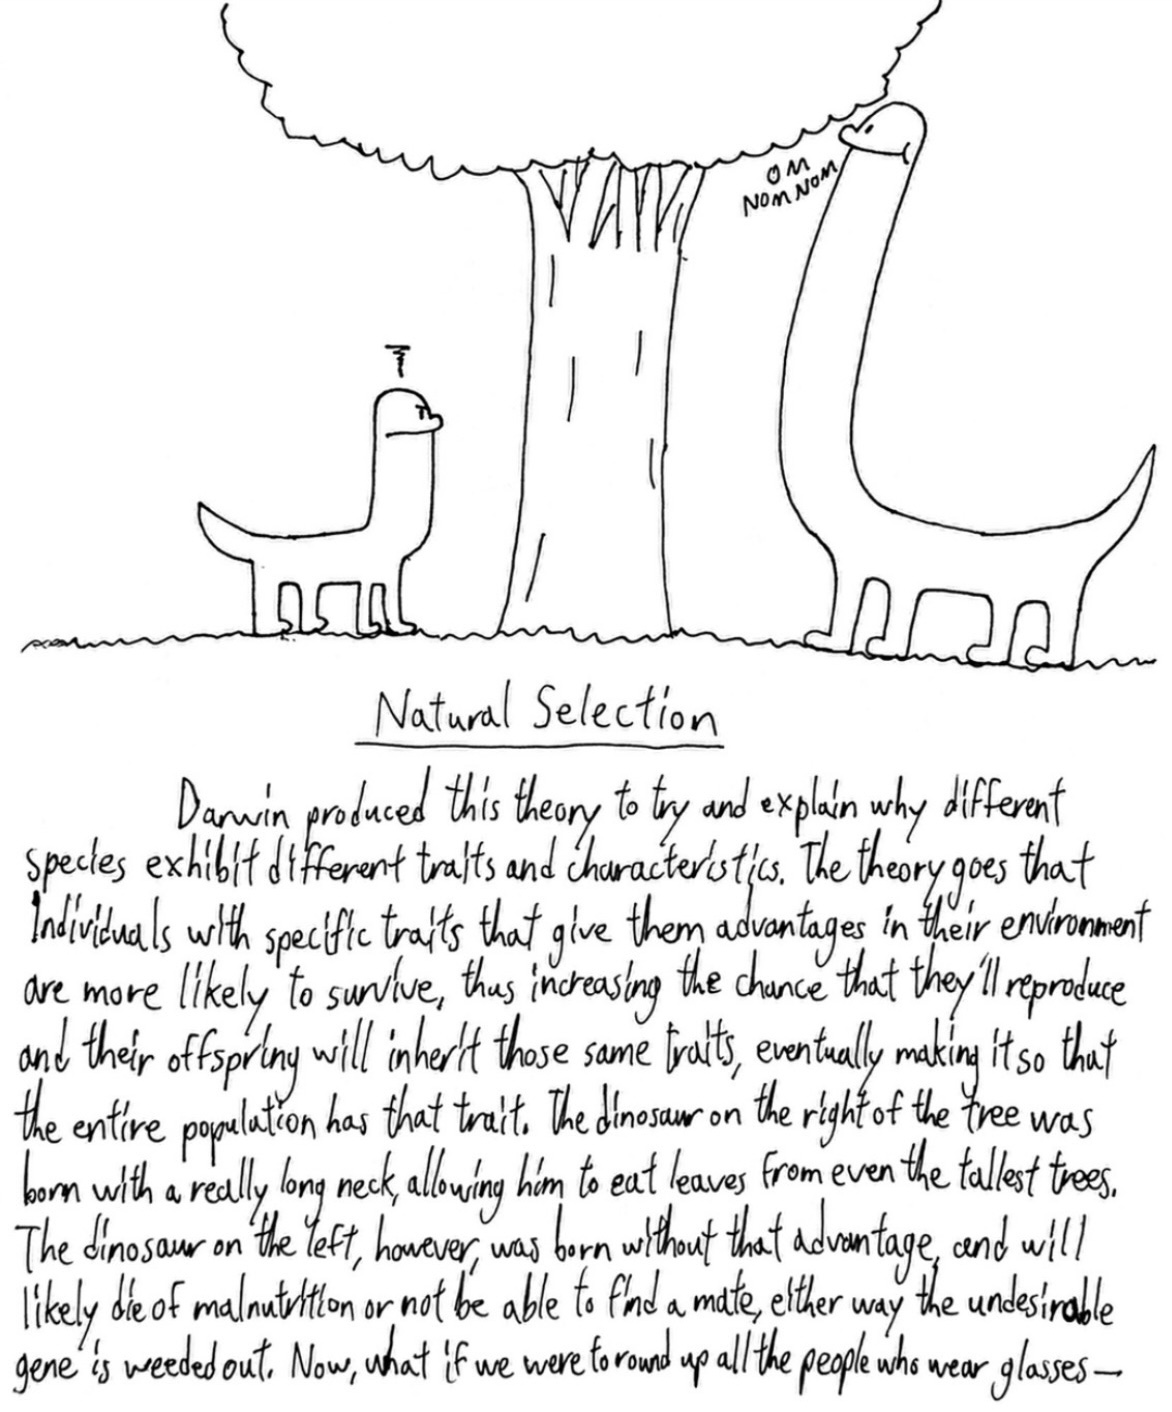 OM
NOM NOM
Natural Selection
Darwin produced this theory to try and explain why different
species exhibit different traits and characteristics. The theory goes that
individuals with specific traits that give them advantages in their environment
are more likely to survive, thus increasing the chance that they'll reproduce
and their offspring will inherit those same traits, eventually making it so that
the entire population has that trait. The dinosaur on the right of the tree was
born with a really long neck, allowing him to eat leaves from even the tallest trees.
The dinosaur on the left, however, was born without that advantage, and will
likely die of malnutrition or not be able to find a mate, either way the undesirable
gene is weeded out. Now, what if we were to round up all the people who wear glasses—